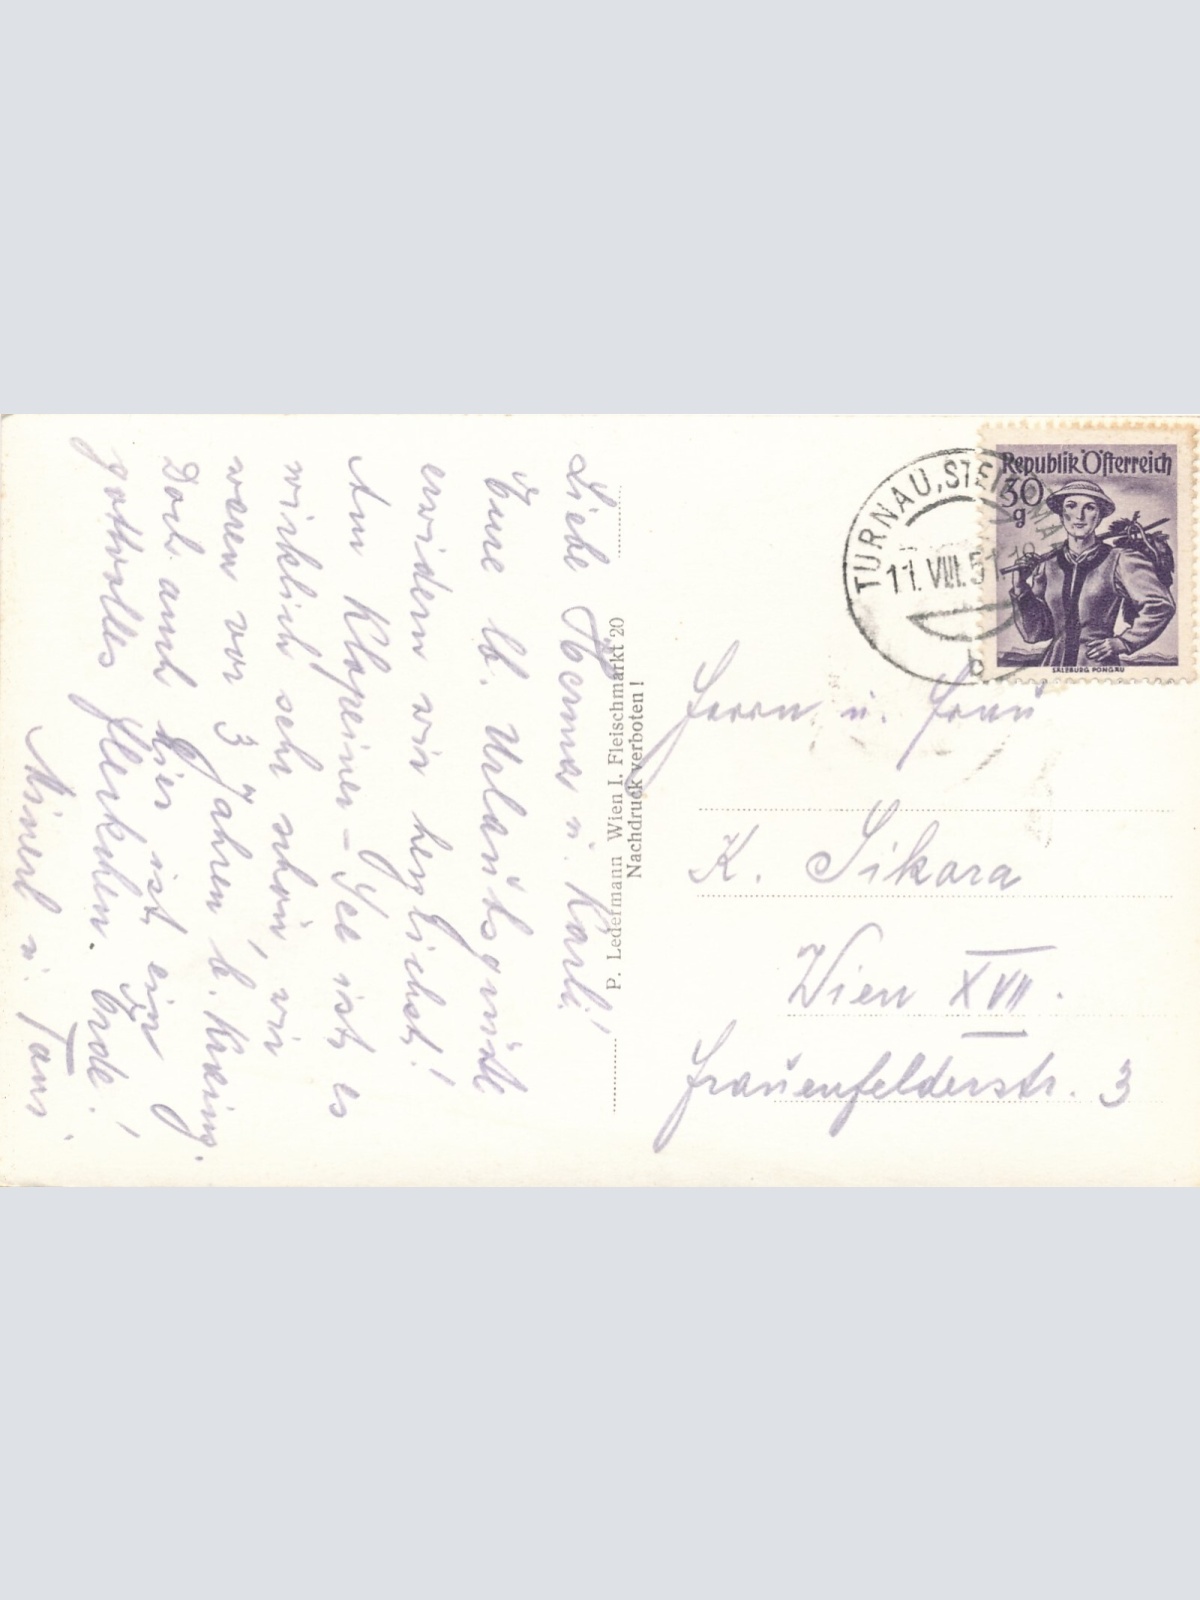 Liebe Herma u. Karli!
Eure lb. Urlaubsgrüße
erwidern wir herzlichst!
Am Klopeiner-See ist es
wirklich sehr schön, wir
waren vor 3 Jahren b. Kreing.
Doch auch hier ist ein
gottvolles Fleckchen Erde!
Minerl u. Toni.
P. Ledermann Wien I. Fleischmarkt 20
Nachdruck verboten!
TURNAU, STEIERMARK
11. VIII. 51. 18
b
Republik Österreich
30
g
SALZBURG PONGAU
Herrn u. Frau
K. Sikora
Wien XVII.
Frauenfelderstr. 3